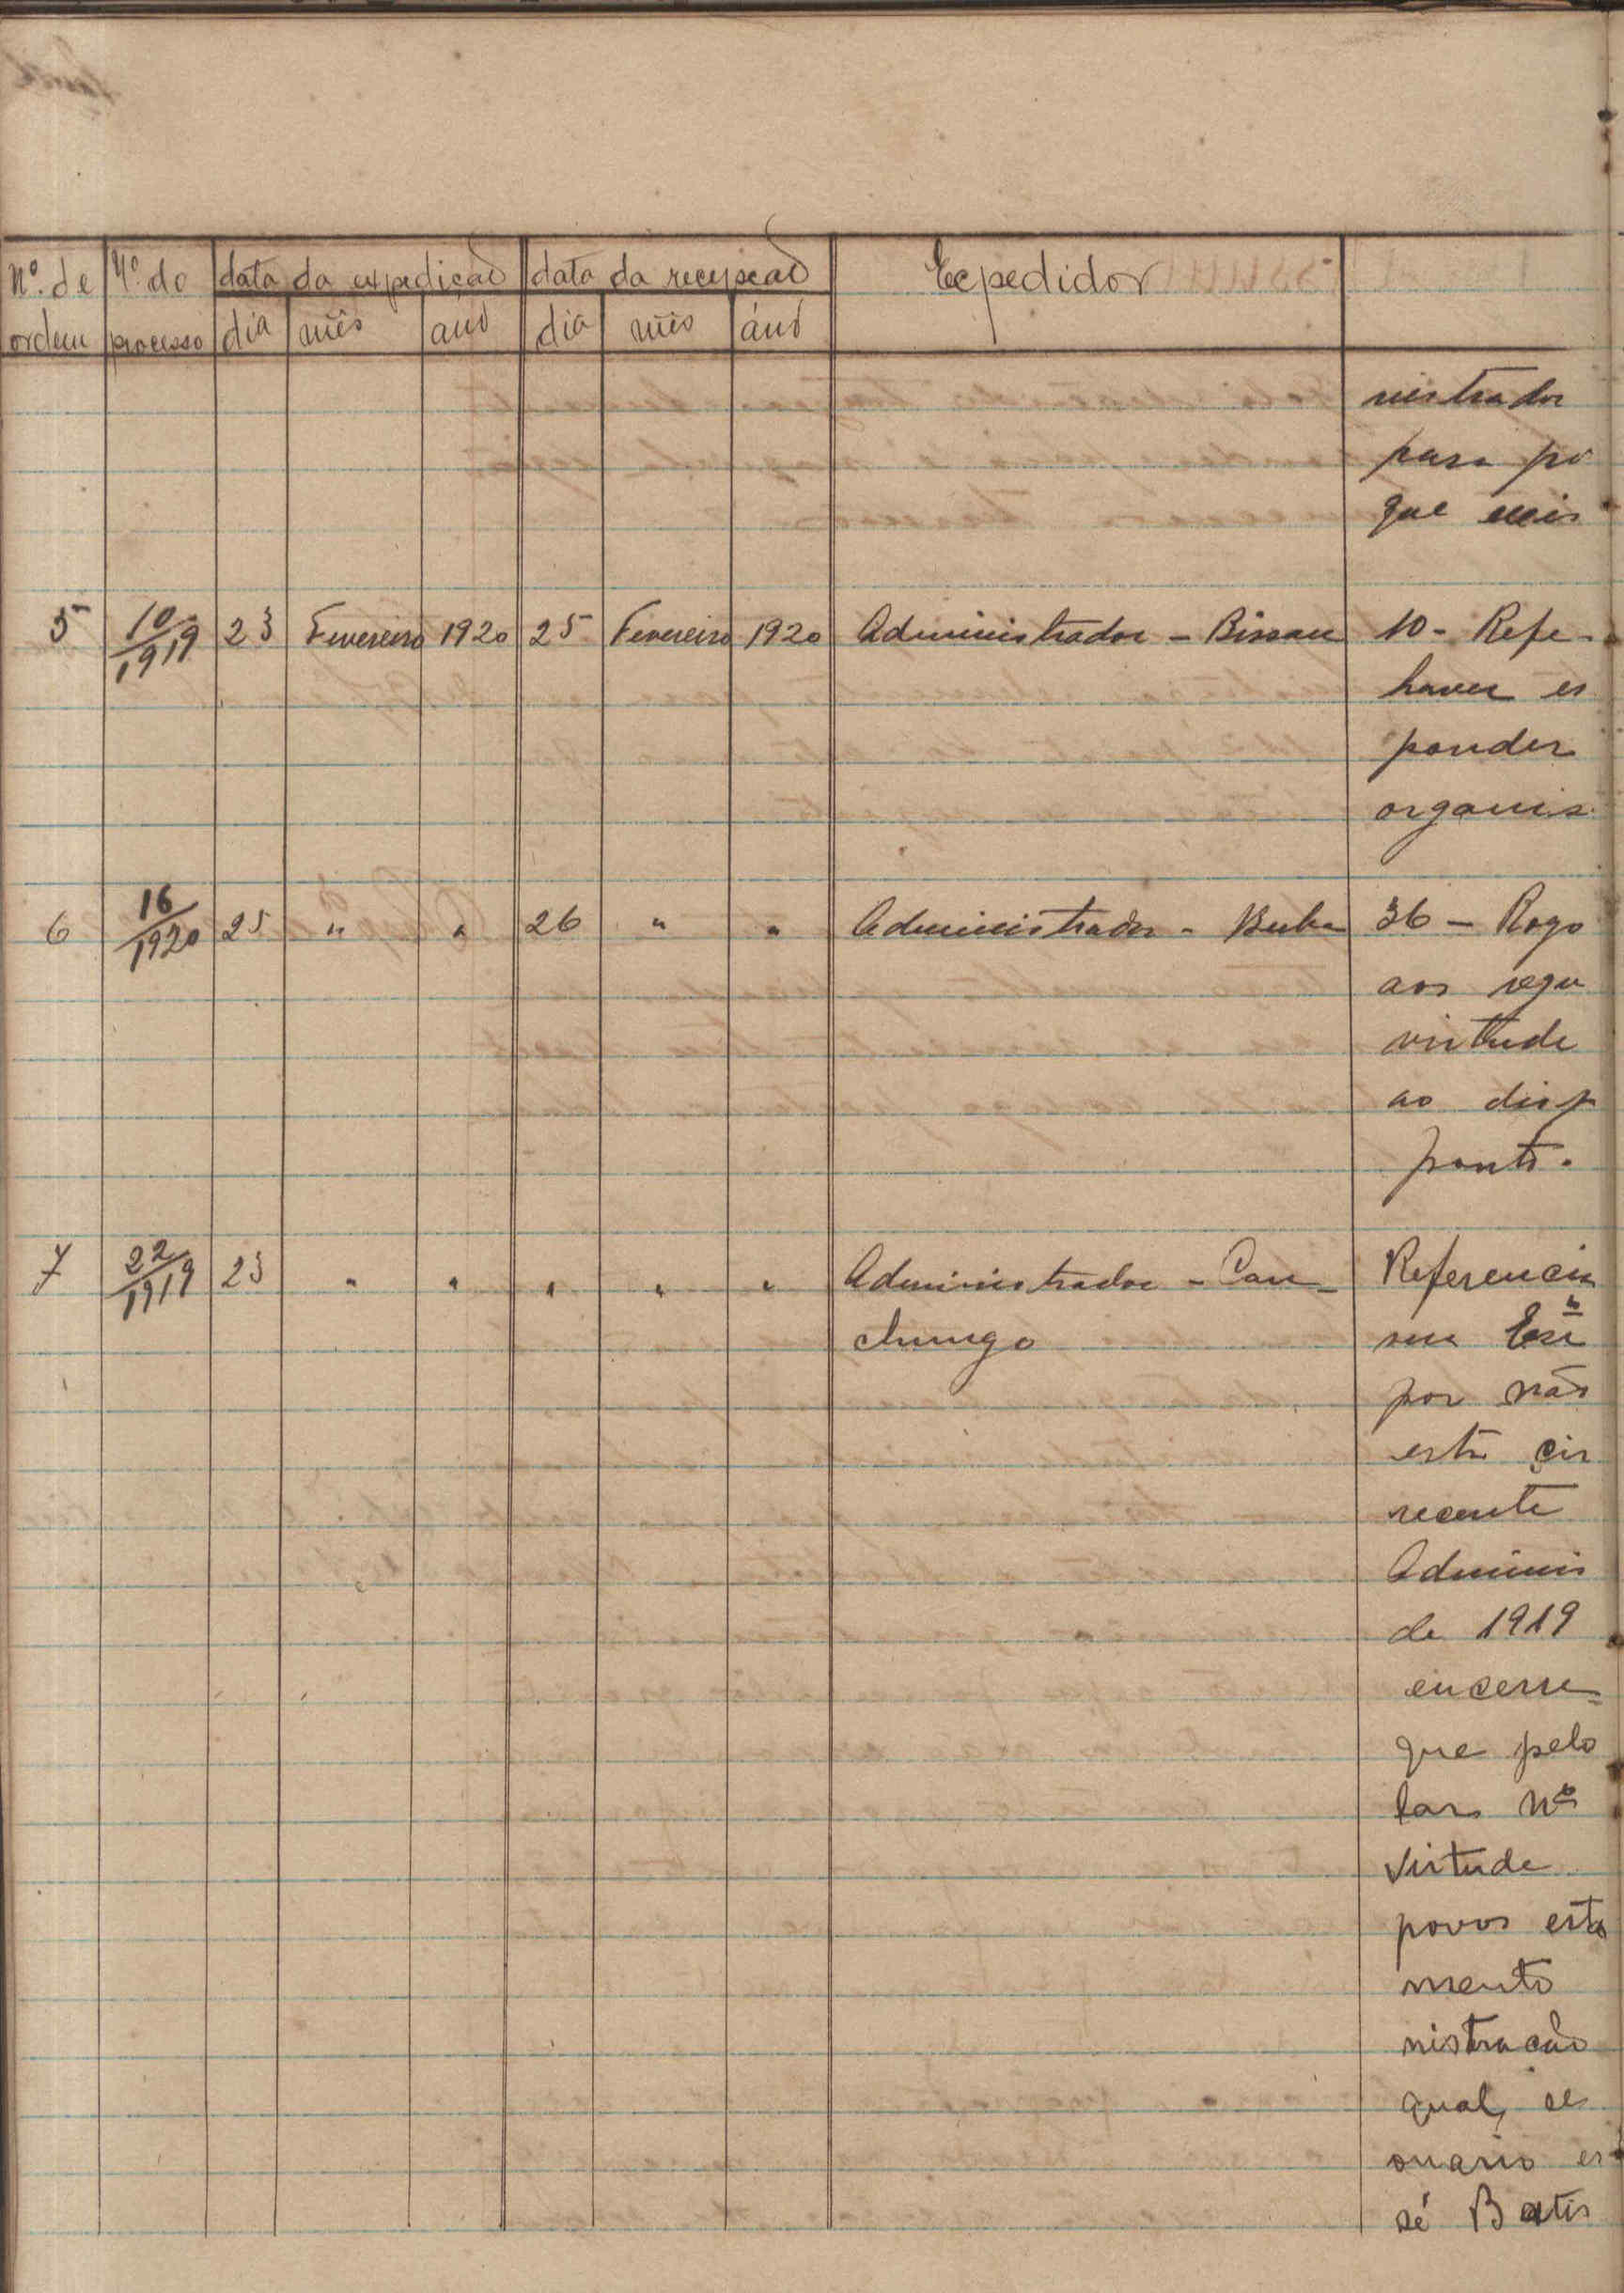 Nº. de Nº. do data da expedição data da recepção Expedidor
ordem processo dia mês ano dia mês áno
nistrador
para po
que mis
5 10/1919 23 Fevereiro 1920 25 Fevereiro 1920 Administrador - Bissau 10 - Refe-
haver es
ponder
organis
6 16/1920 25 " " 26 " " Administrador - Buba 36 - Rogo
aos regu
virtude
ao disp
ponto.
7 22/1919 23 " " " " " Administrador - Can- Referencia
chungo seu
por não
esta cir
recente
Adminis
de 1919
encerre=
que pelo
lar Nº
virtude
povos esta
mento
nistração
qual, se
onario es
sé Batis